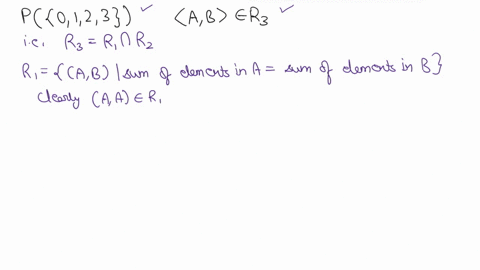 P({0,1,2,3}) ✓ ⟨A,B⟩ ∈ R₃ ✓
i.e. R₃ = R₁ ∩ R₂
R₁ = {(A,B) | sum of elements in A = sum of elements in B}
clearly (A,A) ∈ R₁